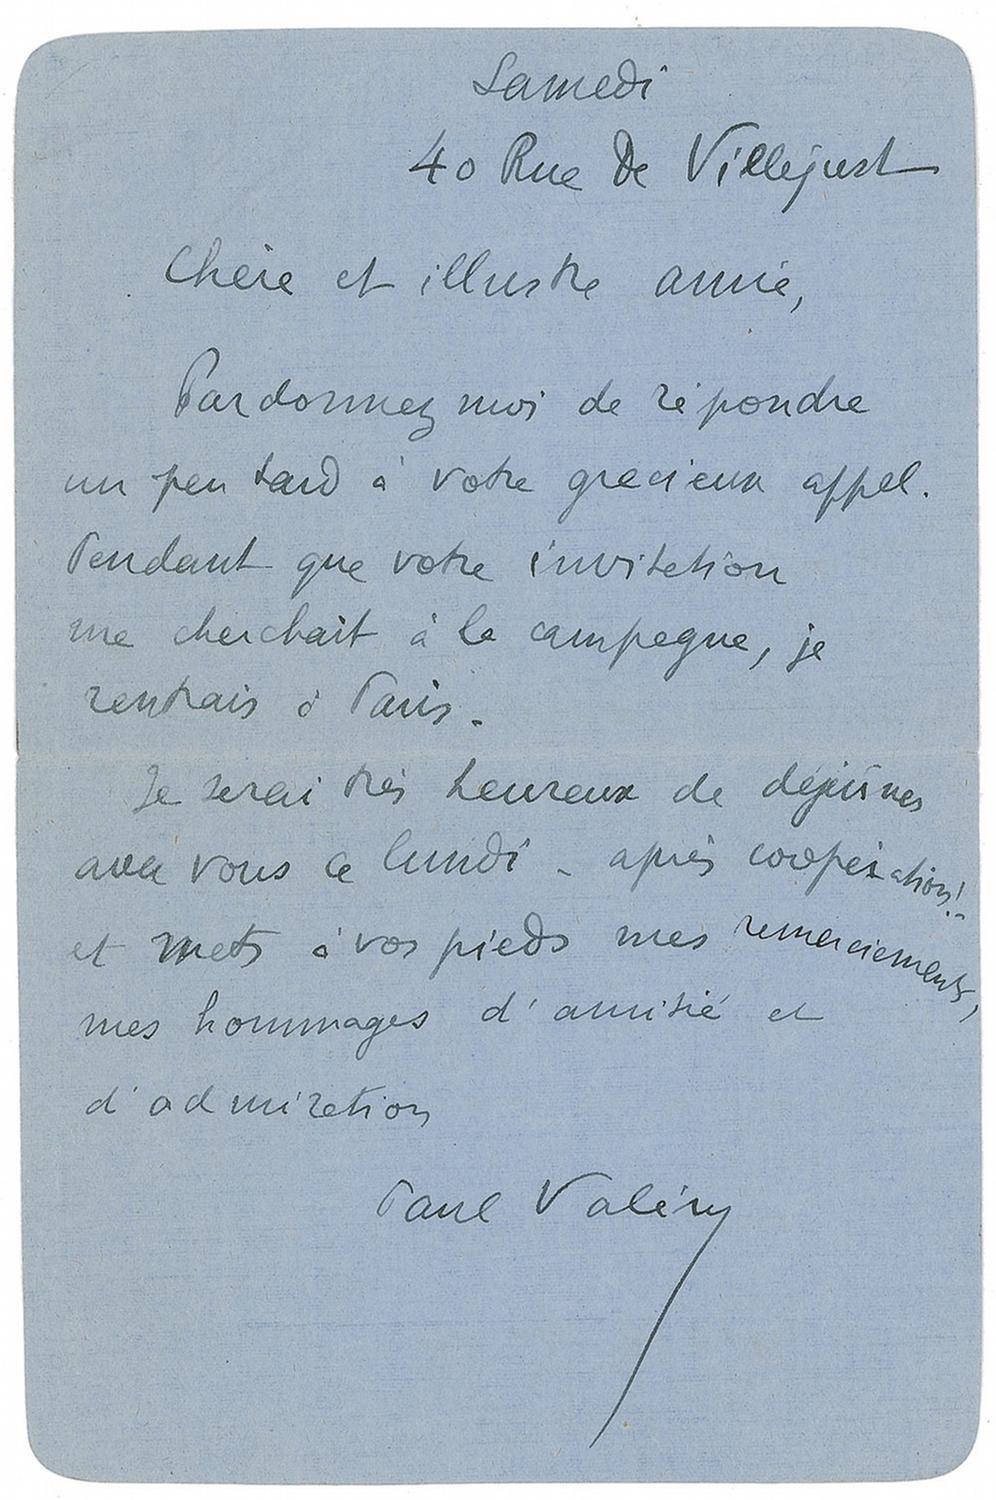 Samedi
40 Rue de Villejust
Chère et illustre amie,
Pardonnez moi de répondre
un peu tard à votre gracieux appel.
Pendant que votre invitation
me cherchait à la campagne, je
rentrais à Paris.
Je serai très heureux de déjeûner
avec vous ce lundi - après coopération!..
et mets à vos pieds mes remerciements,
mes hommages d'amitié et
d'admiration
Paul Valéry